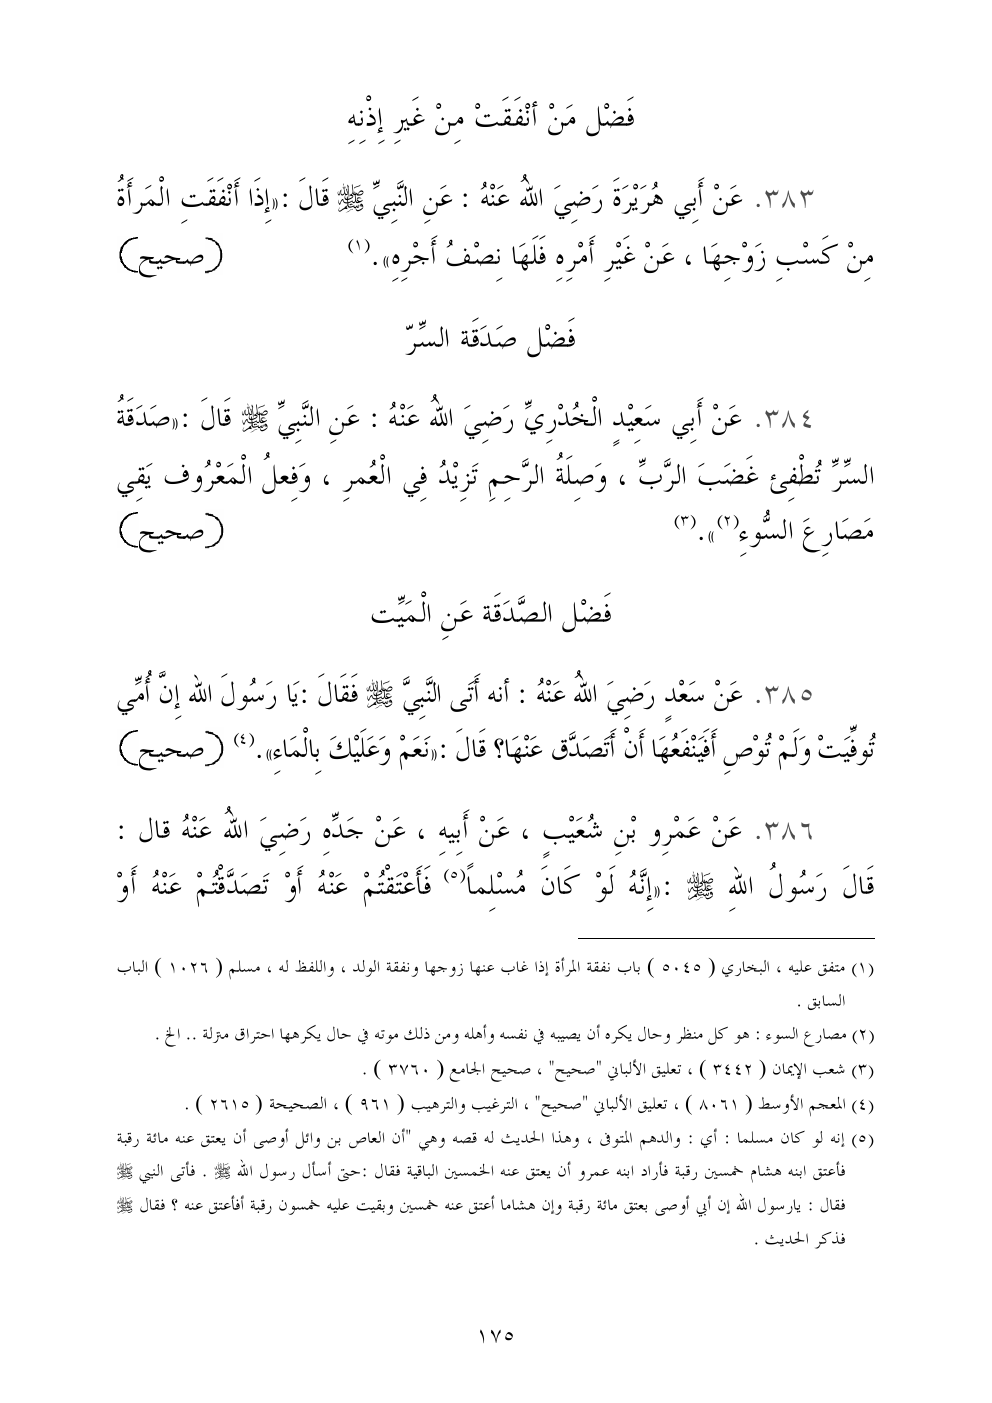 فَضْل مَنْ أنْفَقَتْ مِنْ غَيرِ إِذْنِهِ
٣٨٣. عَنْ أَبِي هُرَيْرَةَ رَضِيَ اللهُ عَنْهُ : عَنِ النَّبِيِّ ﷺ قَالَ :«إِذَا أَنْفَقَتِ الْمَرأَةُ
مِنْ كَسْبِ زَوْجِهَا ، عَنْ غَيْرِ أَمْرِهِ فَلَهَا نِصْفُ أَجْرِهِ».(١) (صحيح)
فَضْل صَدَقَة السِّرّ
٣٨٤. عَنْ أَبِي سَعِيْدٍ الْخُدْرِيِّ رَضِيَ اللهُ عَنْهُ : عَنِ النَّبِيِّ ﷺ قَالَ :«صَدَقَةُ
السِّرِّ تُطْفِئ غَضَبَ الرَّبِّ ، وَصِلَةُ الرَّحِمِ تَزِيْدُ فِي الْعُمرِ ، وَفِعلُ الْمَعْرُوف يَقِي
مَصَارِعَ السُّوءِ(٢)».(٣) (صحيح)
فَضْل الصَّدَقَة عَنِ الْمَيِّت
٣٨٥. عَنْ سَعْدٍ رَضِيَ اللهُ عَنْهُ : أنه أَتَى النَّبِيَّ ﷺ فَقَالَ :يَا رَسُولَ الله إِنَّ أُمِّي
تُوفِّيَتْ وَلَمْ تُوْصِ أَفَيَنْفَعُهَا أَنْ أَتَصَدَّق عَنْهَا؟ قَالَ :«نَعَمْ وَعَلَيْكَ بِالْمَاءِ».(٤) (صحيح)
٣٨٦. عَنْ عَمْرِو بْنِ شُعَيْبٍ ، عَنْ أَبِيهِ ، عَنْ جَدِّهِ رَضِيَ اللهُ عَنْهُ قال :
قَالَ رَسُولُ اللهِ ﷺ :«إِنَّهُ لَوْ كَانَ مُسْلِماً(٥) فَأَعْتَقْتُمْ عَنْهُ أَوْ تَصَدَّقْتُمْ عَنْهُ أَوْ
(١) متفق عليه ، البخاري ( ٥٠٤٥ ) باب نفقة المرأة إذا غاب عنها زوجها ونفقة الولد ، واللفظ له ، مسلم ( ١٠٢٦ ) الباب
السابق .
(٢) مصارع السوء : هو كل منظر وحال يكره أن يصيبه في نفسه وأهله ومن ذلك موته في حال يكرهها احتراق منزلة .. الخ .
(٣) شعب الإيمان ( ٣٤٤٢ ) ، تعليق الألباني "صحيح" ، صحيح الجامع ( ٣٧٦٠ ) .
(٤) المعجم الأوسط ( ٨٠٦١ ) ، تعليق الألباني "صحيح" ، الترغيب والترهيب ( ٩٦١ ) ، الصحيحة ( ٢٦١٥ ) .
(٥) إنه لو كان مسلما : أي : والدهم المتوفى ، وهذا الحديث له قصه وهي "أن العاص بن وائل أوصى أن يعتق عنه مائة رقبة
فأعتق ابنه هشام خمسين رقبة فأراد ابنه عمرو أن يعتق عنه الخمسين الباقية فقال :حتى أسأل رسول الله ﷺ . فأتى النبي ﷺ
فقال : يارسول الله إن أبي أوصى بعتق مائة رقبة وإن هشاما أعتق عنه خمسين وبقيت عليه خمسون رقبة أفأعتق عنه ؟ فقال ﷺ
فذكر الحديث .
١٧٥